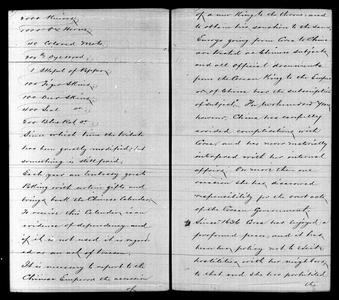 10000 Ox Horns
40 Colored Mats
1 Shipful of Pepper
100 Tiger Skins
100 Deer Skins
400 Seal do
Since which time the tribute
has been greatly modified, but
something is still paid.
Each year an embassy goes to
Peking with certain gifts and
brings back the Chinese Calendar.
To receive this Calendar is an
evidence of dependency and
if it is not used it is regard-
ed as an act of treason.
It is necessary to report to the
Chinese Emperor the accession
of
of a new King to the throne, and
to obtain his sanction to the same.
Envoys going from Corea to China
are treated as Chinese subjects,
and all official documents
from the Corean King to the Emper-
or of China bear the subscription
of subject. For two hundred years
however, China has carefully
avoided complications with
Corea, and has never materially
interfered with her internal
affairs. On more than one
occasion she has disavowed
responsibility for the acts
of the Corean Government.
Since 1636 Corea has enjoyed a
profound peace, and it has
been her policy not to seek
hostilities with her neighbors
to that end she has prohibited
the